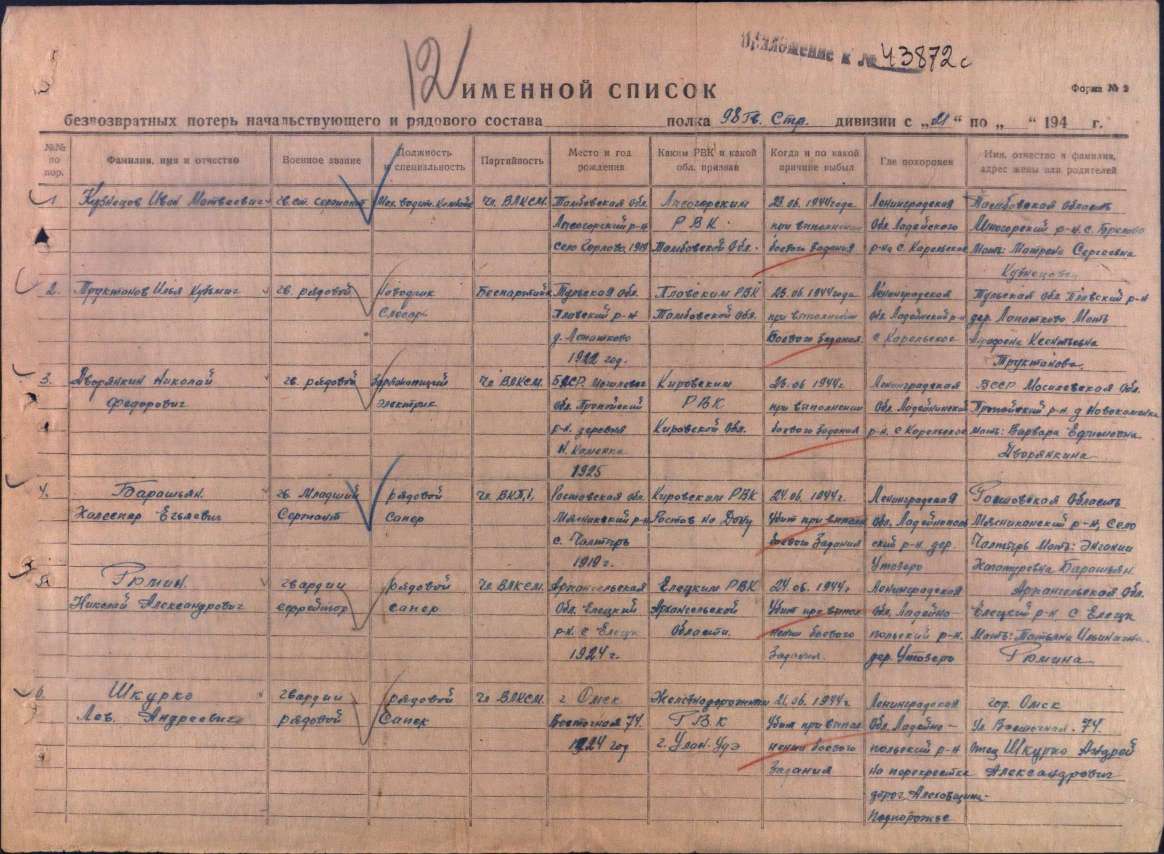 12
Приложение к № 43872с
ИМЕННОЙ СПИСОК
Форма № 2
безвозвратных потерь начальствующего и рядового состава полка 98 Гв. Стр. дивизии с „21“ по „ “ 194 г.
№№ по пор.
Фамилия, имя и отчество
Военное звание
Должность и специальность
Партийность
Место и год рождения
Каким РВК и какой обл. призван
Когда и по какой причине выбыл
Где похоронен
Имя, отчество и фамилия, адрес жены или родителей
1. Кузнецов Иван Матвеевич гв. ст. Сержант Чл. ВЛКСМ. Тамбовская Обл. Лысогорским 23.06.1944 года Ленинградская Тамбовская Область
Лысогорский р-н РВК при выполнении Обл. Лысогорский р-н. с.
Село 1919 Тамбовской Обл. боевого задания р-н с. Карельское Мать: Матрена Сергеевна
Кузнецова
2. Труктанов Илья Кузьмич гв. рядовой Наводчик Беспартийн Тульская Обл. Плавским РВК 23.06.1944 года Ленинградская Тульская обл. Плавский р-н
Слесарь Плавский р-н Тамбовской Обл. при выполнении обл. р-н дер. Лопатково Мать
д. Лопатково Боевого задания с. Карельское
1922 год. Труктанова
3. Дворянкин Николай гв. рядовой Чл. ВЛКСМ. БССР Кировским 23.06 1944 г. Ленинградская БССР Обл.
Федорович Электрик Обл. РВК при выполнении Обл. р-н д.
р-н. деревня Кировской Обл. боевого задания р-н. с. Карельское Мать: Варвара Ефимовна
Н. Каменка Дворянкина
1925
4. Барашьян гв. Младший рядовой Ростовская обл. Кировским РВК 24.06.1944 г. Ленинградская Ростовская Область
Сержант Сапер Мясниковский р-н Ростов на Дону Убит при выполн Обл. р-н, Село
с. Чалтырь боевого Задания ский р-н. дер. Чалтырь Мать:
1919 г. Утозеро Барашьян
5. Рюмин гвардии рядовой Чл ВЛКСМ. Архангельская Елецким РВК 24.06.1944 г. Ленинградская Архангельская Обл.
Николай Александрович ефрейтор сапер Обл. Елецкий Архангельской Убит при выпол обл. Ладейно Елецкий р-н. с
р-н. с Области. нении боевого польский р-н. Мать: Татьяна Ильинична
1924 г. Задания. дер. Утозеро Рюмина
6. Шкурко гвардии рядовой Чл ВЛКСМ. г Омск 21.06.1944 г. Ленинградская гор. Омск
Лев Андреевич рядовой Сапер Восточная 74. ГВК Убит при выпол Обл. Ладейно- Ул. Восточная. 74
1924 год г. Улан-Удэ нении боевого польский р-н отец Шкурко Андрей
Задания на перекрестке Александрович
дорог Алеховщина-
Подпорожье